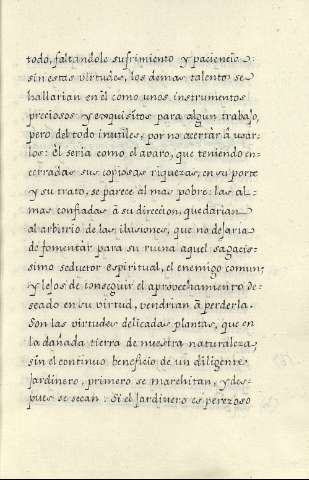 todo, faltandole sufrimiento y paciencia:
sin estas virtudes, los demas talento se
hallarian en èl como unos instrumentos
preciosos y exquisitos para algun trabajo,
pero del todo inutiles, por no acertar â usar-
los: Él seria como el avaro, que teniendo en-
cerradas sus copiosas riquezas, en su porte
y su trato, se parece al mas pobre: las al-
mas confiadas â su direccion, quedarian
al arbitrio de las ilusiones, que no dejaria
de fomentar para su ruina aquel sagacis-
simo seductor espiritual, el enemigo comun,
y lejos de conseguir el aprovechamiento de-
seado en su virtud, vendrian â perderla.
Son las virtudes delicadas plantas, que en
la dañada tierra de nuestra naturaleza,
sin el continuo beneficio de un diligente
Jardinero, primero se marchitan, y des-
pues se secan: Si el Jardinero es perezoso